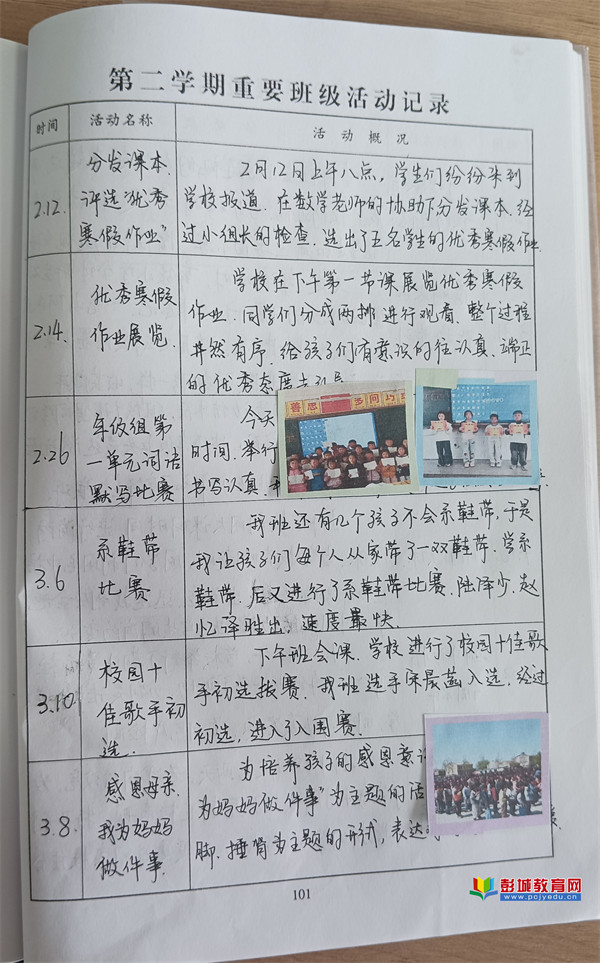 第二学期重要班级活动记录
时间 活动名称 活动概况
2.12.
分发课本.
评选"优秀
寒假作业"
2月12日上午八点，学生们纷纷来到
学校报道．在数学老师的协助下分发课本.经
过小组长的检查．选出了五名学生的优秀寒假作业
2.14.
优秀寒假
作业展览.
学校在下午第一节课展览优秀寒假
作业．同学们分成两排进行观看．整个过程
井然有序．给孩子们有意识的往认真．端正
的优秀态度去
2.26
年级组第
一单元词语
默写比赛
今天
时间．举行
书写认真．
善思 多问
3.6
系鞋带
比赛
我班还有几个孩子不会系鞋带，于是
我让孩子们每个人从家带了一双鞋带．学系
鞋带．后又进行了系鞋带比赛．陆泽少．赵
忆泽胜出，速度最快．
3.10
校园十
佳歌手初
选．
下午班会课．学校进行了校园十佳歌
手初选拔赛．我班选手宋晨菡入选．经过
初选，进入了入围赛．
3.8.
感恩母亲．
我为妈妈
做件事．
为培养孩子的感恩意识
为妈妈做件事"为主题的活
脚．捶背为主题的形式，表达
101
彭城教育网
www.pcjyedu.cn